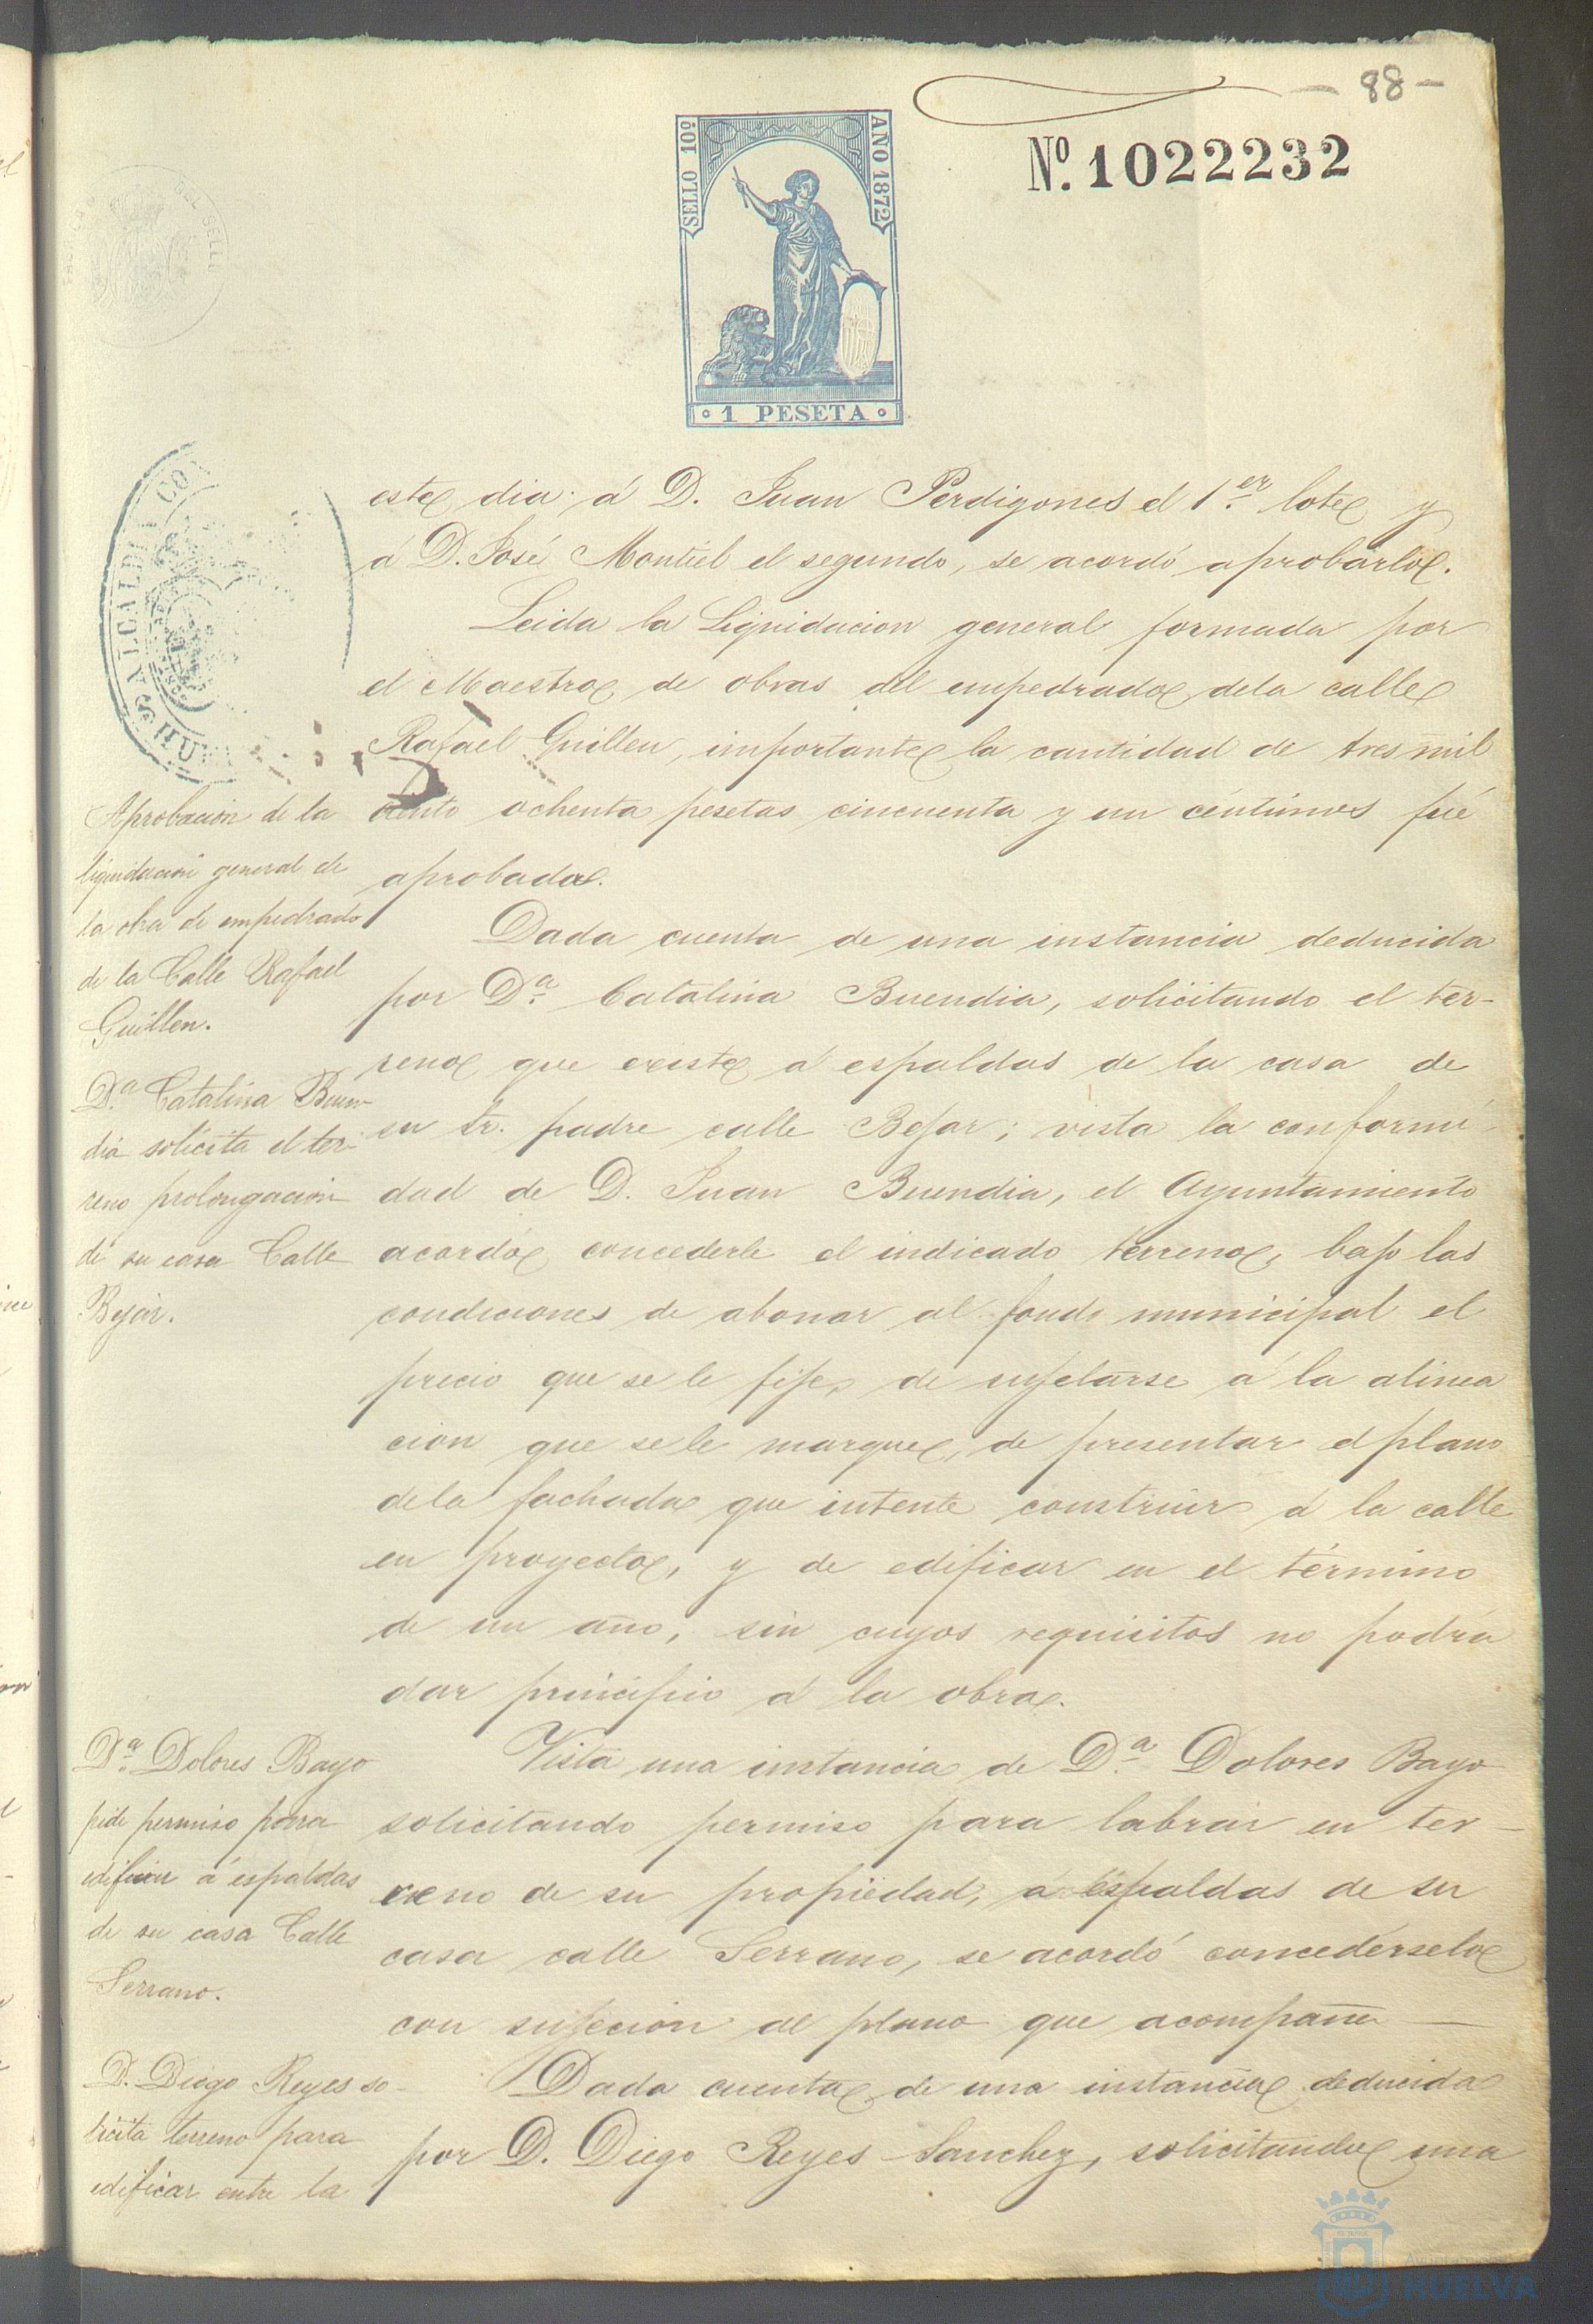 - 88 -
Nº. 1022232
SELLO 10º
AÑO 1872
1 PESETA
ALCALDIA CO
HU
este dia á D. Juan Perdigones el 1.er lote y
á D. José Montiel el segundo, se acordó aprobarlo.
Leida la Liquidacion general formada por
el Maestro de obras del empedrado dela calle
Rafael Guillen, importante la cantidad de tres mil
ciento ochenta pesetas cincuenta y un céntimos fué
aprobada.
Aprobacion de la
liquidacion general de
la obra de empedrado
de la Calle Rafael
Guillen.
Dada cuenta de una instancia deducida
por D.ª Catalina Buendia, solicitando el ter-
reno que existe á espaldas de la casa de
su Sr. padre calle Bejar; vista la conformi-
dad de D. Juan Buendia, el Ayuntamiento
acordó concederle el indicado terreno, bajo las
condiciones de abonar al fondo municipal el
precio que se le fije, de sujetarse á la alinea
cion que se le marque, de presentar el plano
dela fachada que intente construir á la calle
en proyecto, y de edificar en el término
de un año, sin cuyos requisitos no podrá
dar principio á la obra.
D.ª Catalina Buen-
dia solicita el ter-
reno prolongacion
de su casa Calle
Bejar.
Vista una instancia de D.ª Dolores Bayo
solicitando permiso para labrar en ter-
reno de su propiedad, á espaldas de su
casa calle Serrano, se acordó concedérselo
con sujecion al plano que acompaña
D.ª Dolores Bayo
pide permiso para
edificar á espaldas
de su casa Calle
Serrano.
Dada cuenta de una instancia deducida
por D. Diego Reyes Sanchez, solicitando una
D. Diego Reyes so-
licita terreno para
edificar entre la
HUELVA